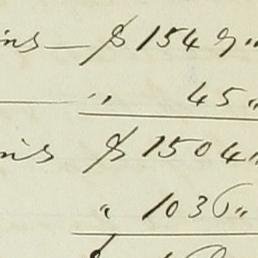 ins — $ 1549 "
" 45 "
ins $ 1504 "
" 1036 "
$